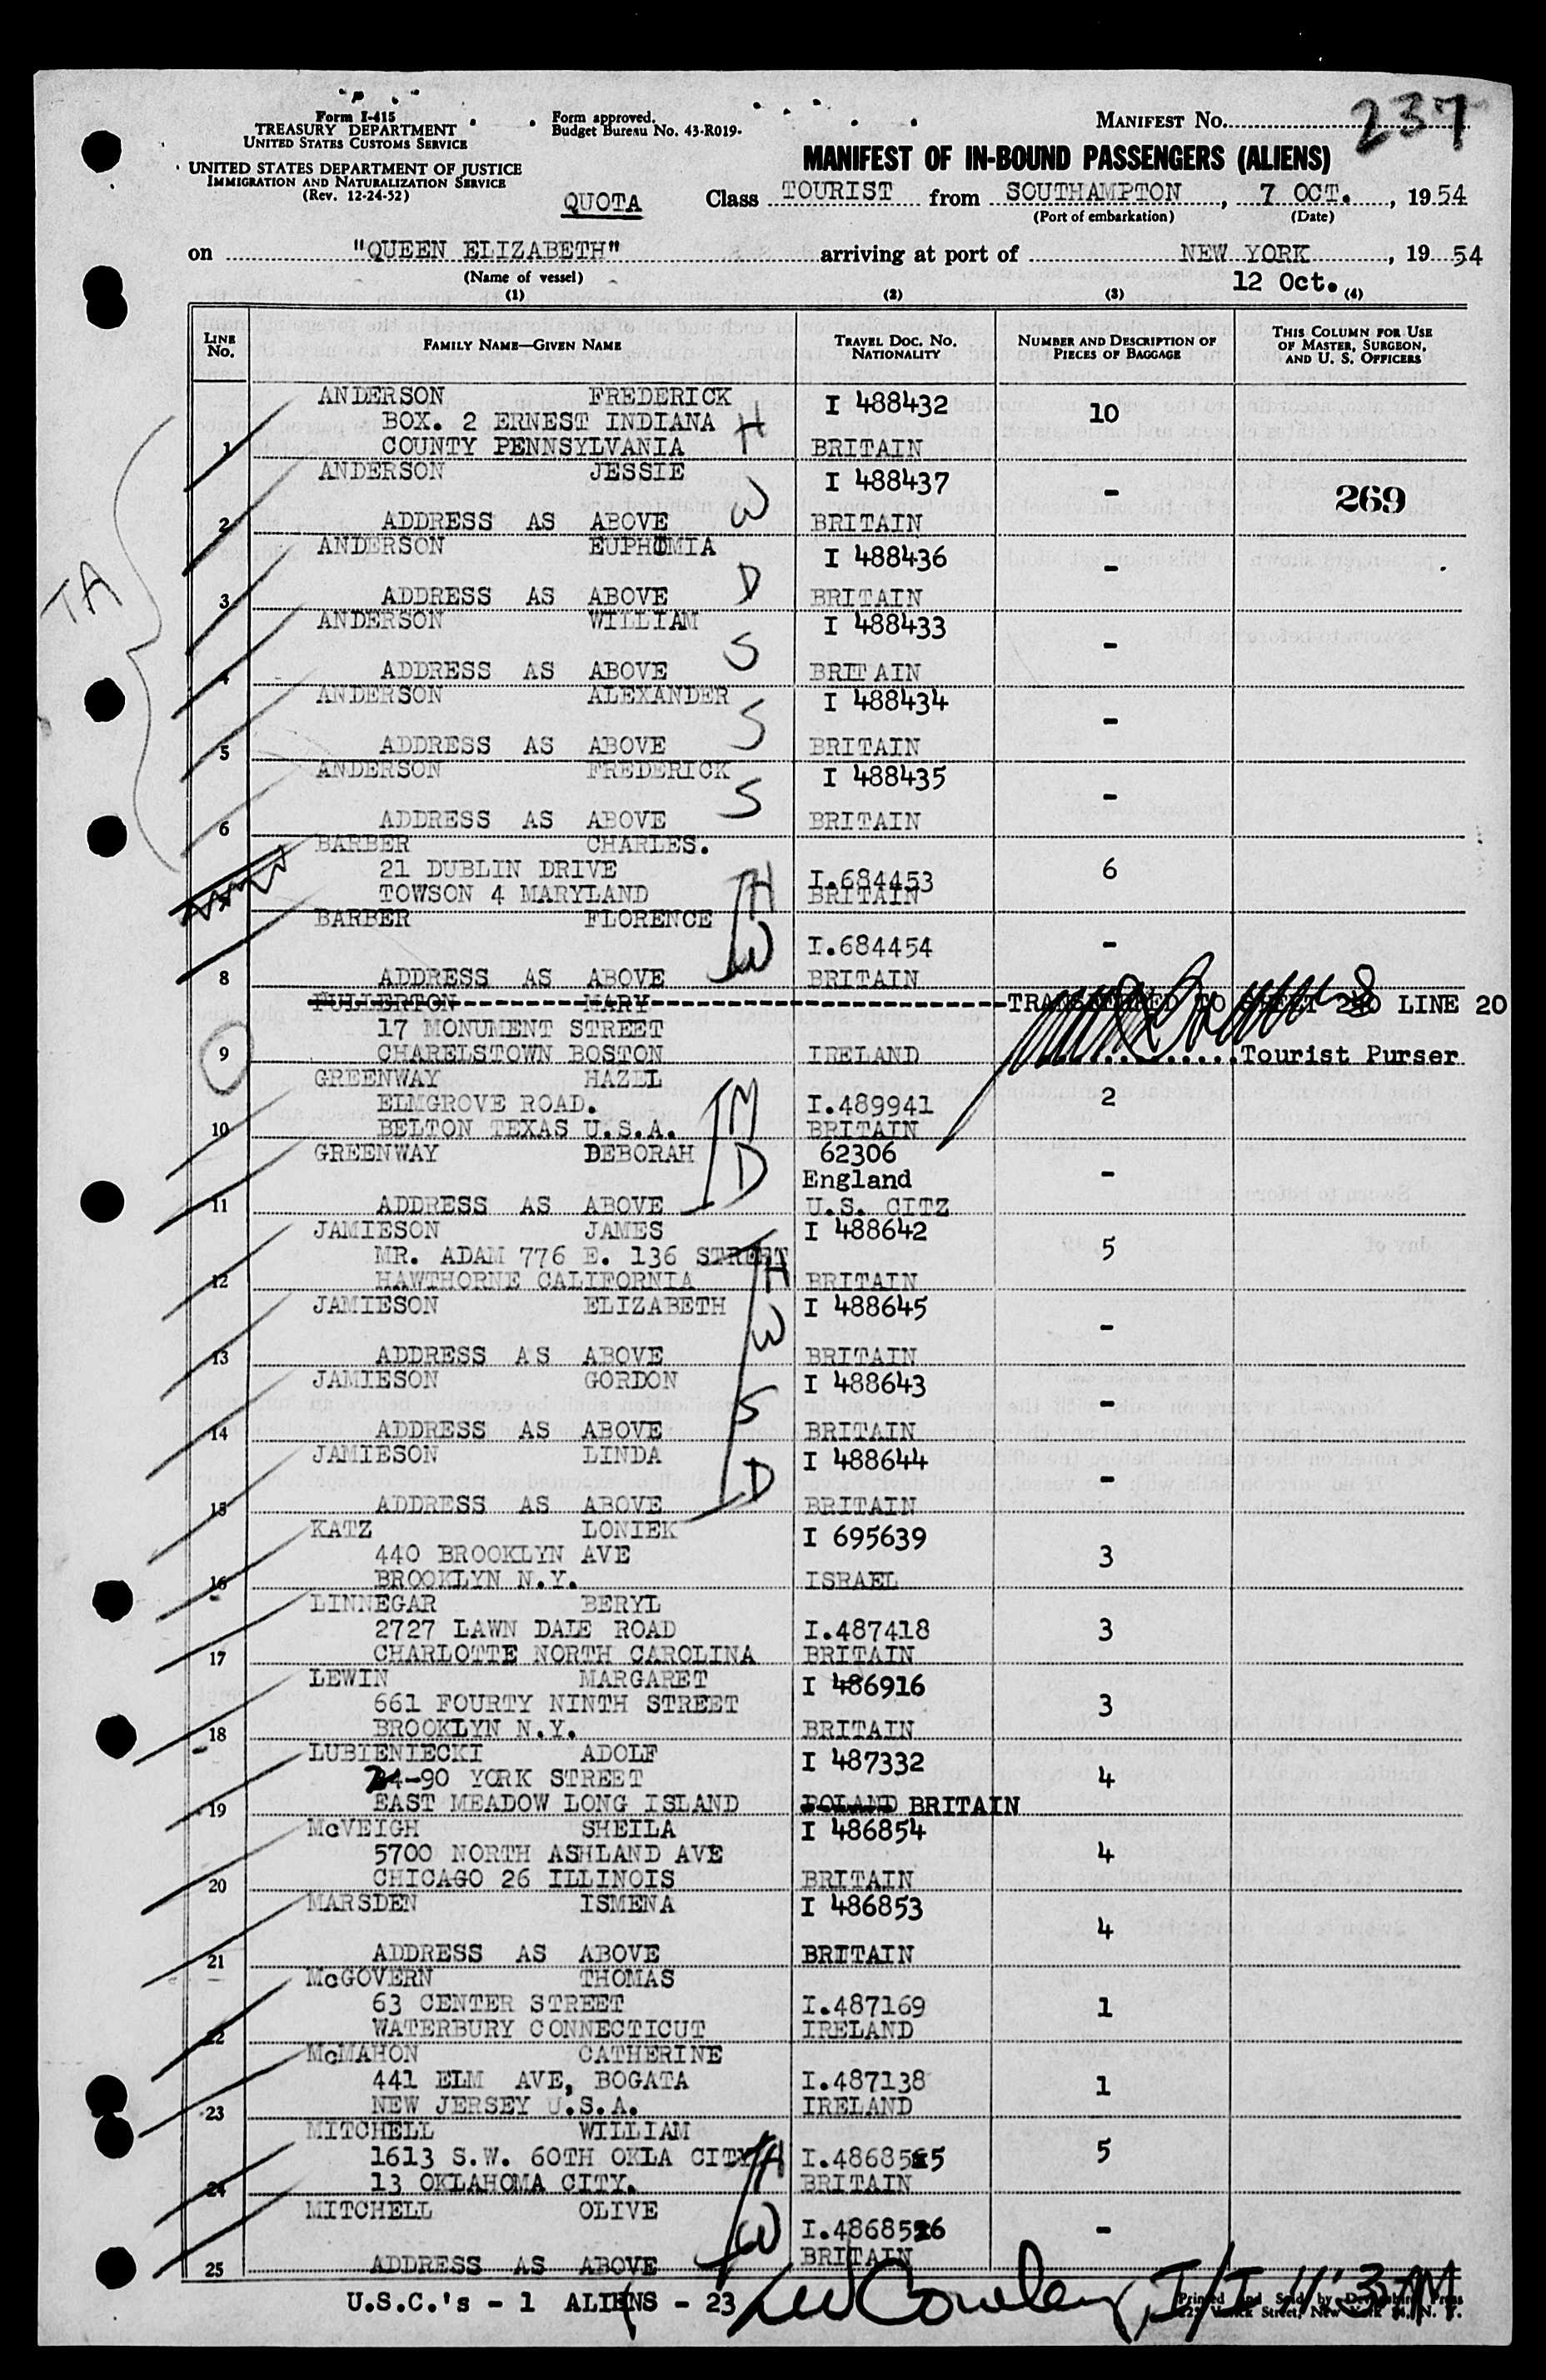 Form I-415
TREASURY DEPARTMENT
UNITED STATES CUSTOMS SERVICE
UNITED STATES DEPARTMENT OF JUSTICE
IMMIGRATION AND NATURALIZATION SERVICE
(Rev. 12-24-52)
Form approved.
Budget Bureau No. 43-R019-
MANIFEST No. 237
MANIFEST OF IN-BOUND PASSENGERS (ALIENS)
QUOTA Class TOURIST from SOUTHAMPTON, 7 OCT., 1954
(Port of embarkation) (Date)
on "QUEEN ELIZABETH" arriving at port of NEW YORK, 19 54
(Name of vessel) 12 Oct.
(1) (2) (3) (4)
LINE No. FAMILY NAME—GIVEN NAME TRAVEL DOC. NO. NATIONALITY NUMBER AND DESCRIPTION OF PIECES OF BAGGAGE THIS COLUMN FOR USE OF MASTER, SURGEON, AND U. S. OFFICERS
TA
ANDERSON FREDERICK I 488432 10
BOX. 2 ERNEST INDIANA H
1 COUNTY PENNSYLVANIA BRITAIN
ANDERSON JESSIE I 488437 - 269
2 ADDRESS AS ABOVE W BRITAIN
ANDERSON EUPHIMIA I 488436 -
3 ADDRESS AS ABOVE D BRITAIN
ANDERSON WILLIAM I 488433 -
4 ADDRESS AS ABOVE S BRITAIN
ANDERSON ALEXANDER I 488434 -
5 ADDRESS AS ABOVE S BRITAIN
ANDERSON FREDERICK S I 488435 -
6 ADDRESS AS ABOVE BRITAIN
BARBER CHARLES.
21 DUBLIN DRIVE I.684453 6
TOWSON 4 MARYLAND H BRITAIN
BARBER FLORENCE
W I.684454 -
8 ADDRESS AS ABOVE BRITAIN
FULLERTON MARY TRANSFERRED TO SHEET LINE 20
17 MONUMENT STREET
9 CHARELSTOWN BOSTON IRELAND Tourist Purser
GREENWAY HAZEL
ELMGROVE ROAD. M I.489941 2
10 BELTON TEXAS U.S.A. BRITAIN
GREENWAY DEBORAH D 62306
England -
11 ADDRESS AS ABOVE U.S. CITZ
JAMIESON JAMES I 488642
MR. ADAM 776 E. 136 STREET H 5
12 HAWTHORNE CALIFORNIA BRITAIN
JAMIESON ELIZABETH I 488645
W -
13 ADDRESS AS ABOVE BRITAIN
JAMIESON GORDON I 488643
S -
14 ADDRESS AS ABOVE BRITAIN
JAMIESON LINDA I 488644
D -
15 ADDRESS AS ABOVE BRITAIN
KATZ LONIEK I 695639
440 BROOKLYN AVE 3
16 BROOKLYN N.Y. ISRAEL
LINNEGAR BERYL
2727 LAWN DALE ROAD I.487418 3
17 CHARLOTTE NORTH CAROLINA BRITAIN
LEWIN MARGARET I 486916
661 FOURTY NINTH STREET 3
18 BROOKLYN N.Y. BRITAIN
LUBIENIECKI ADOLF I 487332
24-90 YORK STREET 4
19 EAST MEADOW LONG ISLAND POLAND BRITAIN
McVEIGH SHEILA I 486854
5700 NORTH ASHLAND AVE 4
20 CHICAGO 26 ILLINOIS BRITAIN
MARSDEN ISMENA I 486853
4
21 ADDRESS AS ABOVE BRITAIN
McGOVERN THOMAS
63 CENTER STREET I.487169 1
22 WATERBURY CONNECTICUT IRELAND
McMAHON CATHERINE
441 ELM AVE, BOGATA I.487138 1
23 NEW JERSEY U.S.A. IRELAND
MITCHELL WILLIAM
1613 S.W. 60TH OKLA CITY H 5
24 13 OKLAHOMA CITY. BRITAIN
MITCHELL OLIVE
W -
25 ADDRESS AS ABOVE BRITAIN
U.S.C.'s - 1 ALIENS - 23